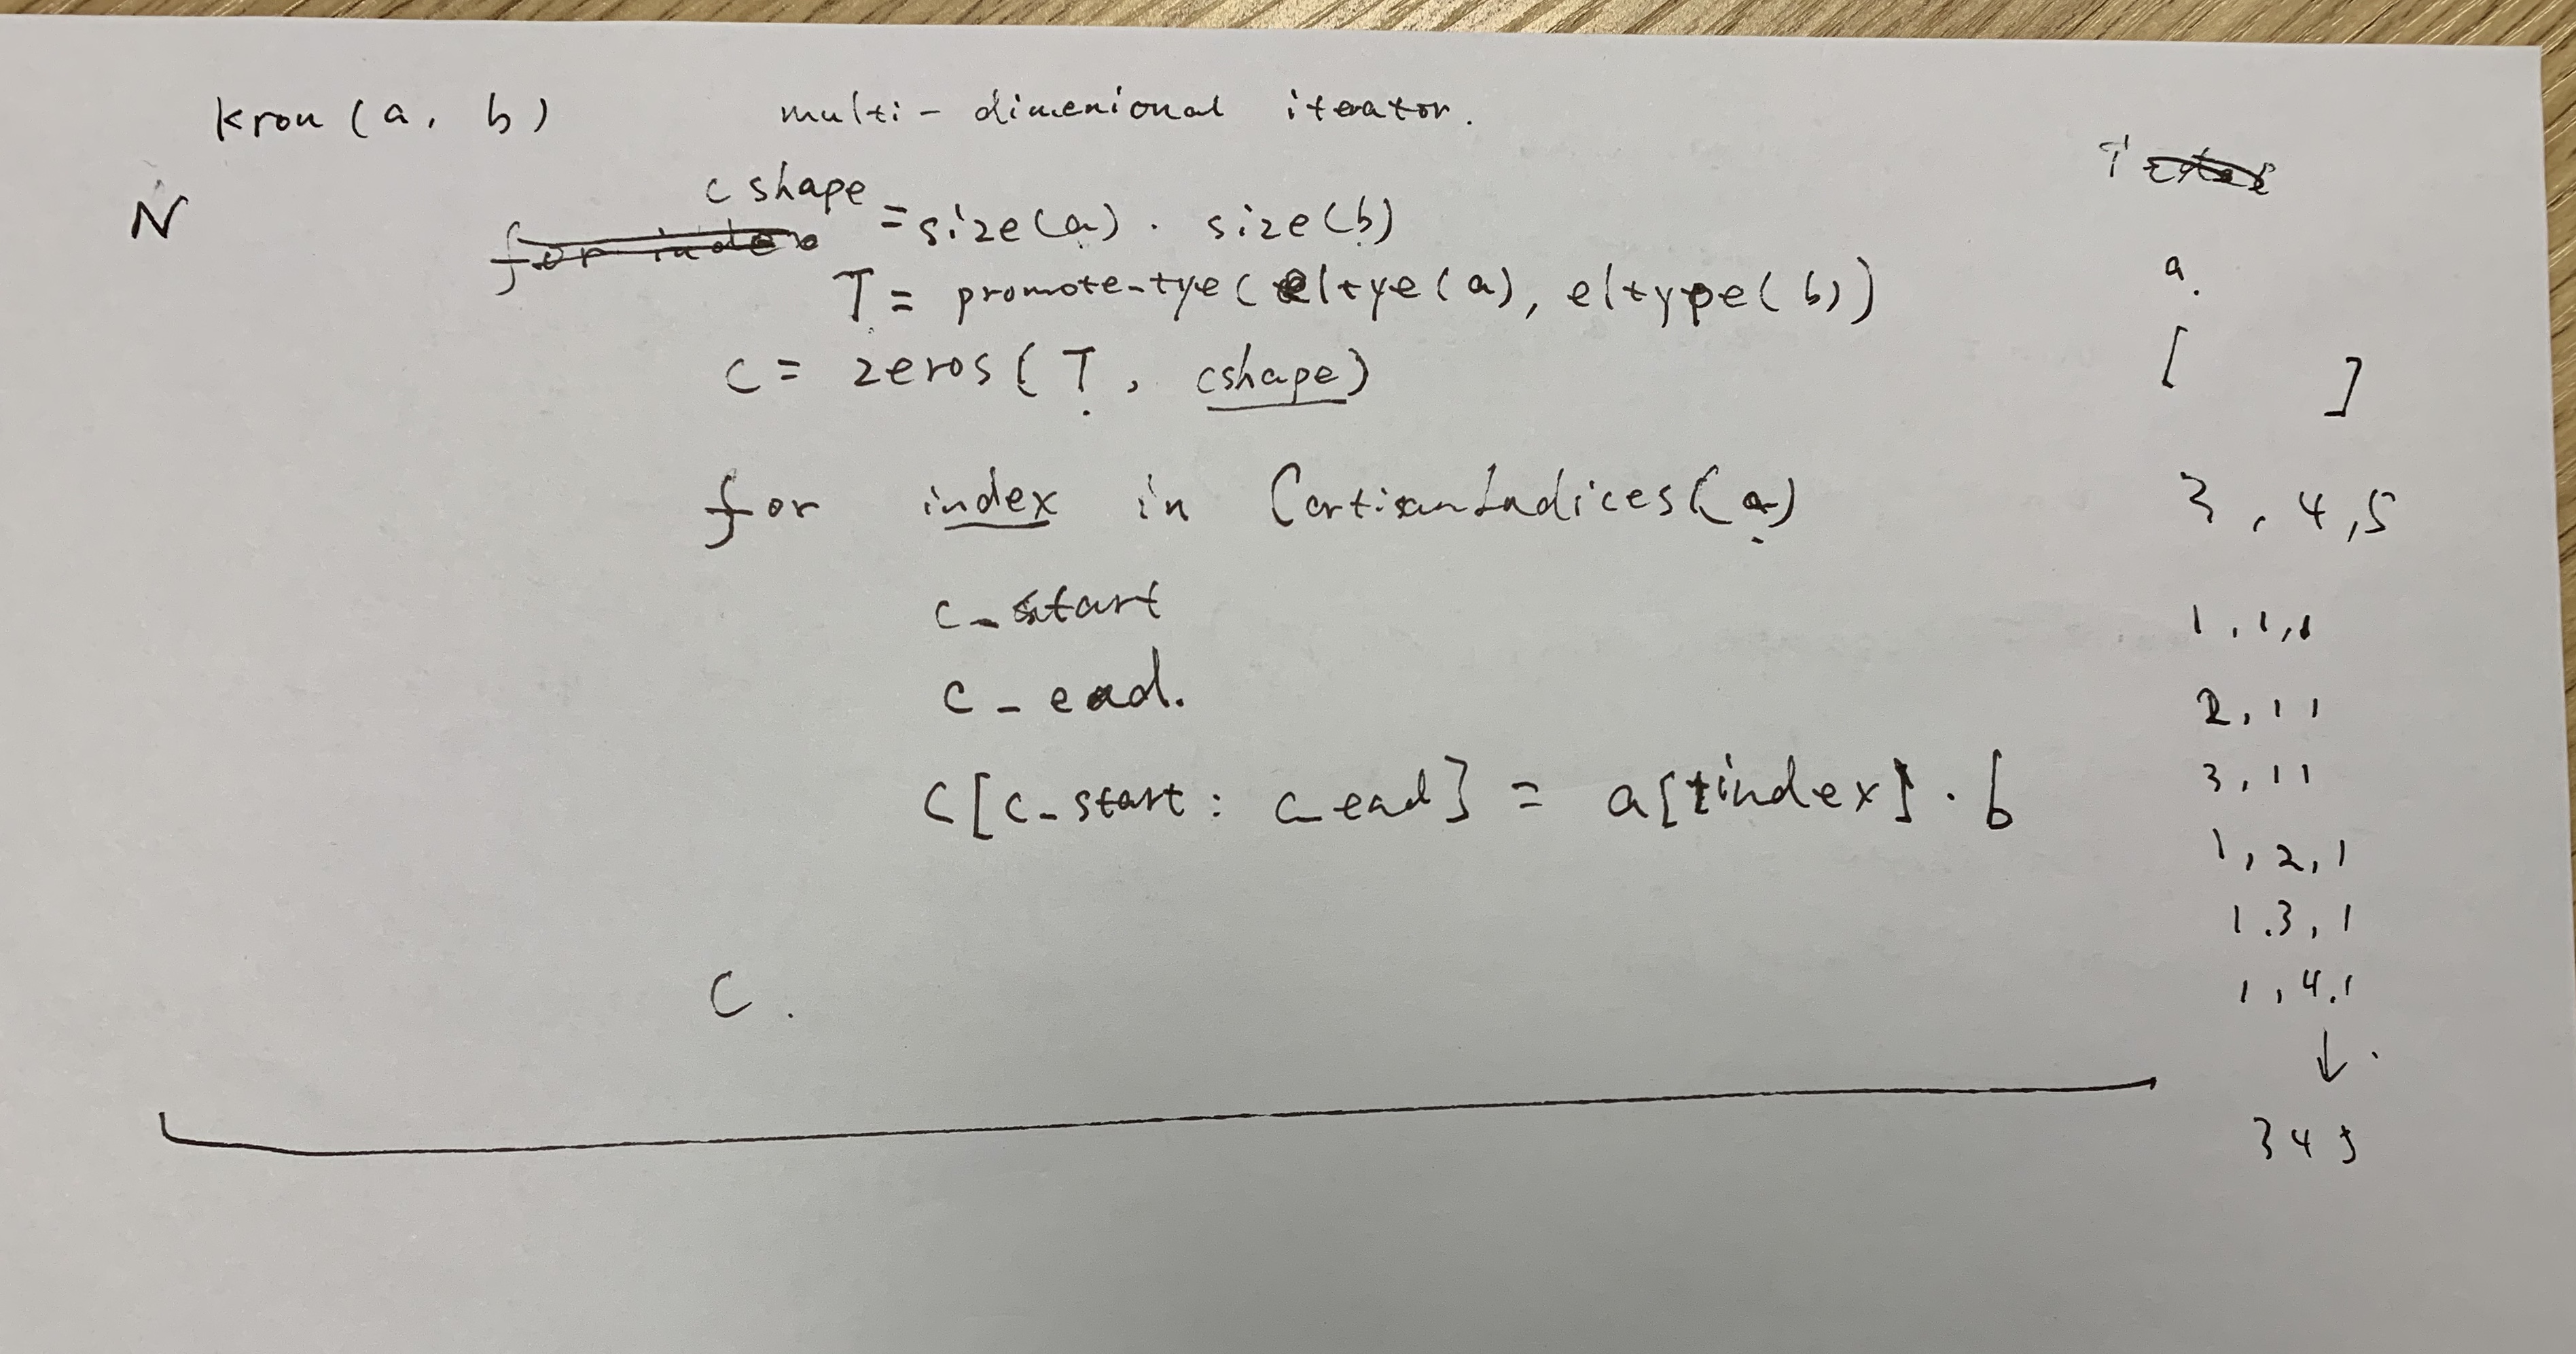 kron(a, b)
multi-dimenional iterator.
N
cshape = size(a) . size(b)
for index
T = promote-tye(eltye(a), eltype(b))
c = zeros(T, cshape)
for index in CartisanIndices(a)
c_start
c_end.
C[c_start: c_end] = a[index] . b
C.
T
a.
[ ]
3, 4, 5
1, 1, 1
2, 1 1
3, 1 1
1, 2, 1
1.3, 1
1, 4.1
↓ .
3 4 5